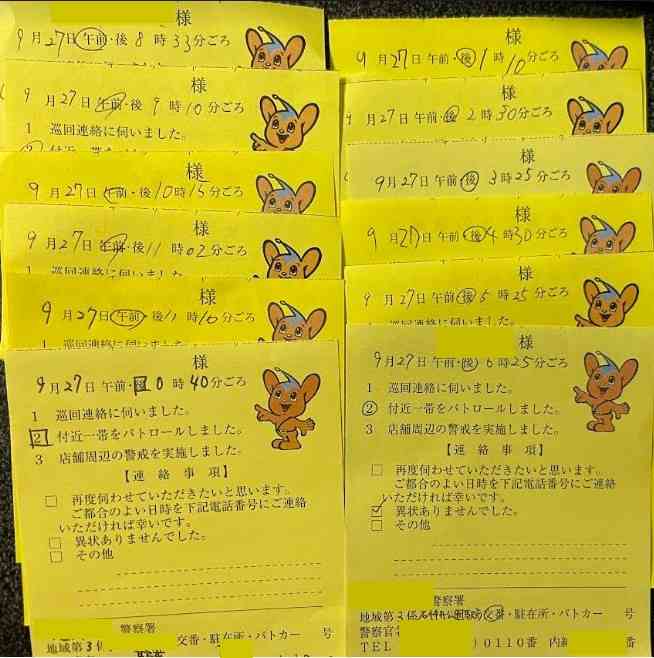 様
9月27日 午前・後 8時33分ごろ
様
9月27日 午前・後 9時10分ごろ
1 巡回連絡に伺いました。
様
9月27日 午前・後 10時15分ごろ
様
9月27日 午前・後 11時02分ごろ
1 巡回連絡に伺いました。
様
9月27日 午前・後 11時10分ごろ
1 巡回連絡に伺いました。
様
9月27日 午前・後 0時40分ごろ
1 巡回連絡に伺いました。
2 付近一帯をパトロールしました。
3 店舗周辺の警戒を実施しました。
【連絡事項】
□ 再度伺わせていただきたいと思います。
ご都合のよい日時を下記電話番号にご連絡
いただければ幸いです。
□ 異状ありませんでした。
□ その他
警察署
地域第3係 交番・駐在所・パトカー 号
様
9月27日 午前・後 1時10分ごろ
様
9月27日 午前・後 2時30分ごろ
様
9月27日 午前・後 3時25分ごろ
様
9月27日 午前・後 4時30分ごろ
様
9月27日 午前・後 5時25分ごろ
1 巡回連絡に伺いました。
様
9月27日 午前・後 6時25分ごろ
1 巡回連絡に伺いました。
2 付近一帯をパトロールしました。
3 店舗周辺の警戒を実施しました。
【連絡事項】
□ 再度伺わせていただきたいと思います。
ご都合のよい日時を下記電話番号にご連絡
いただければ幸いです。
☑ 異状ありませんでした。
□ その他
警察署
地域第3係 交番・駐在所・パトカー 号
警察官
TEL 0110番 内線